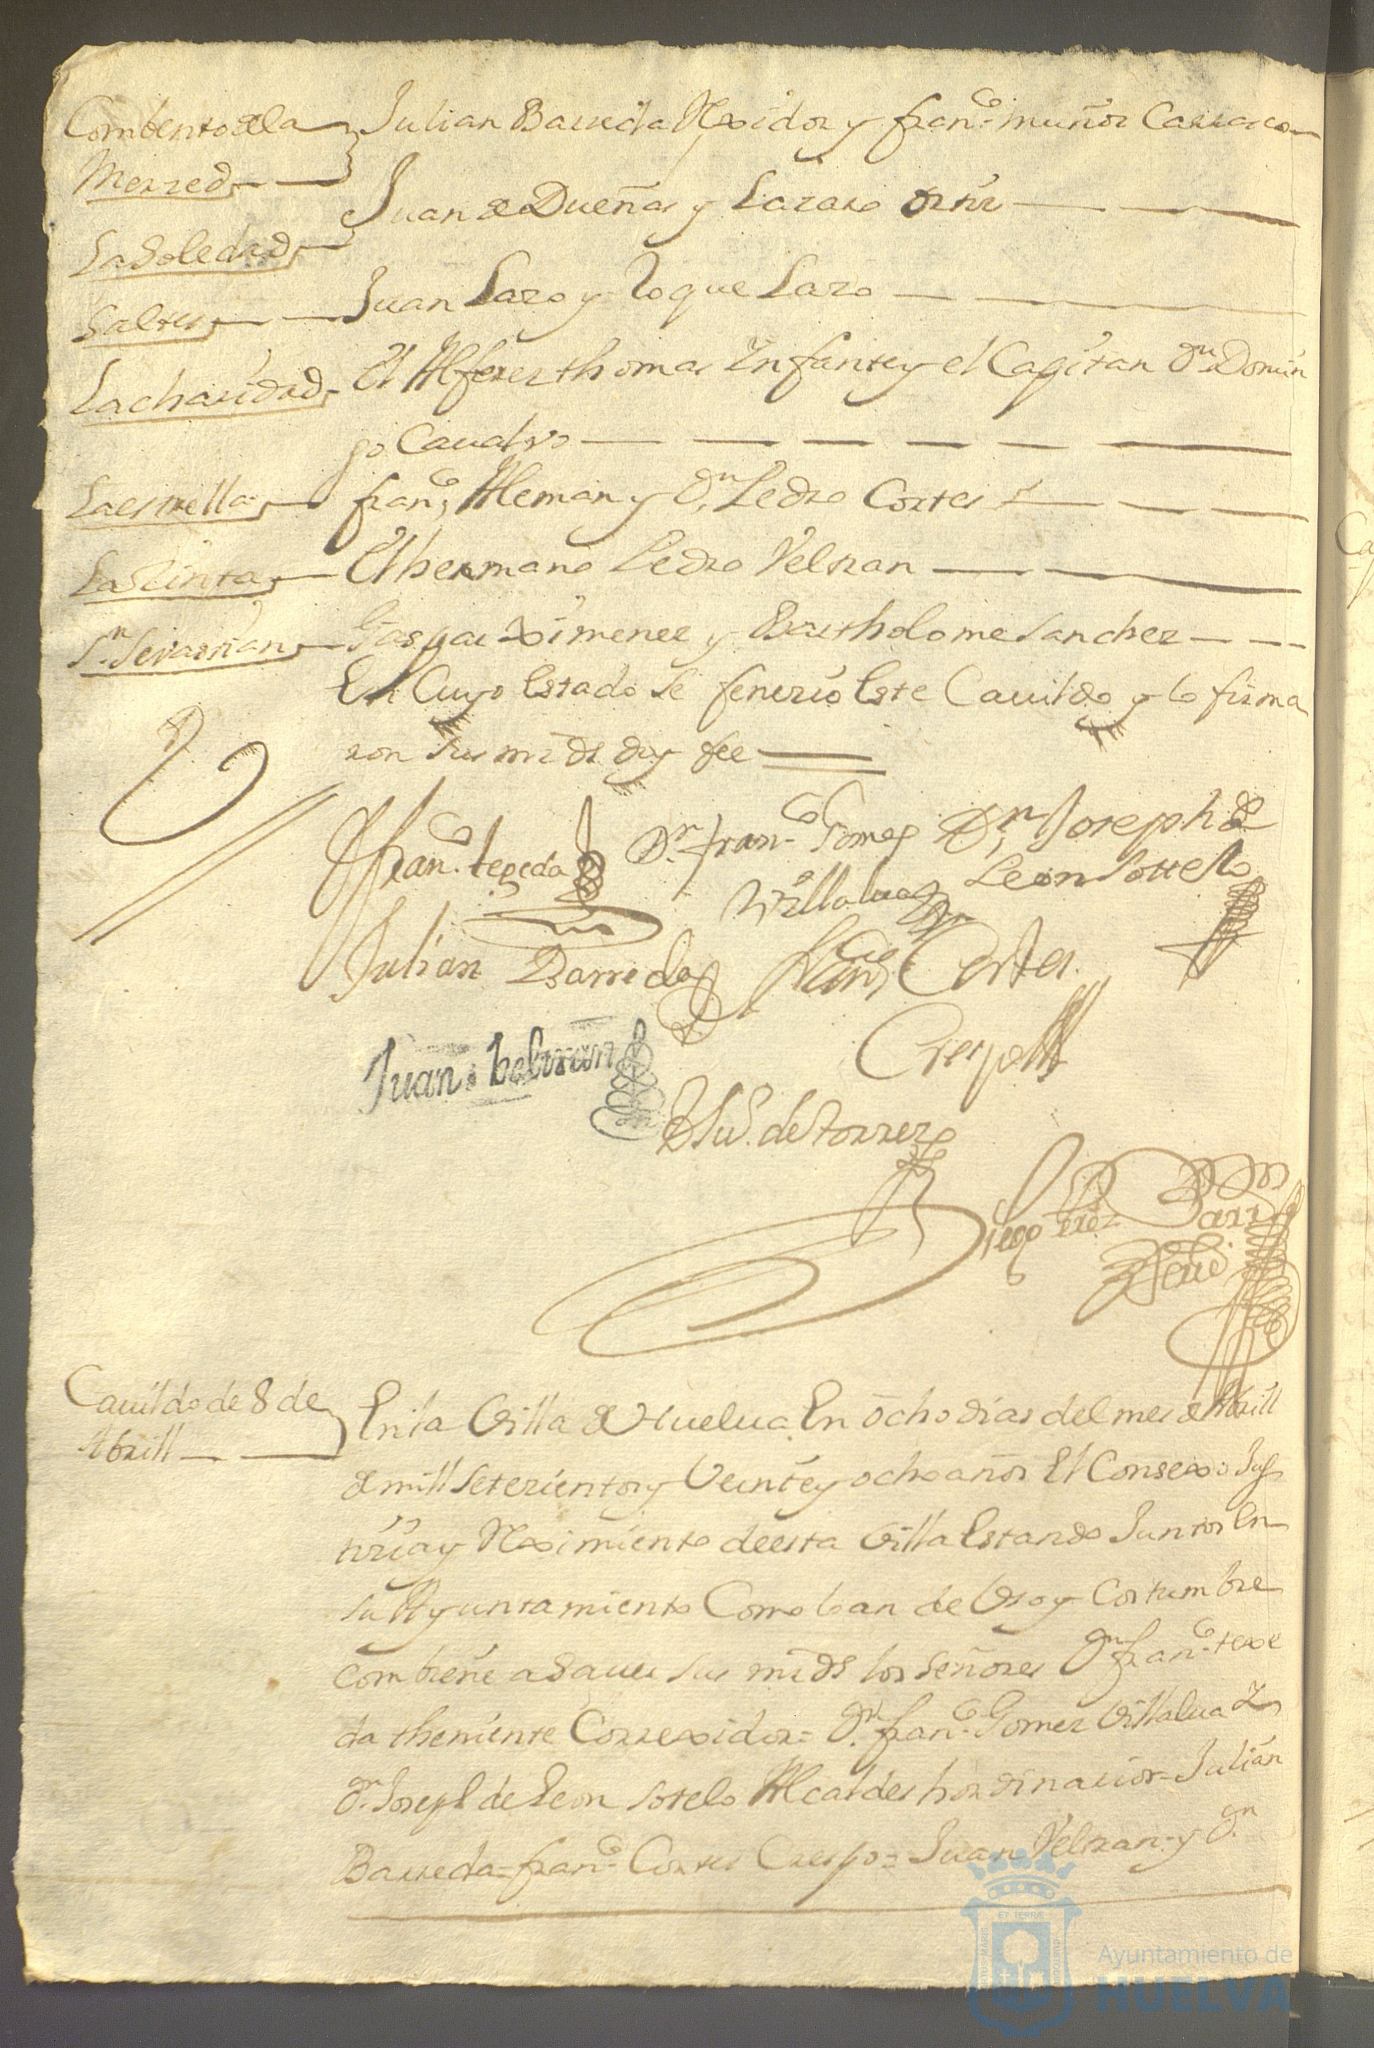 Combento de la Merzed Julian Barreda Rexidor y fran.co muñoz Carrasco
La Soledad Juan de Dueñas y Lazaro ortiz
Saltes Juan Lazo y Roque Lazo
La charidad El Alferez thomas Infante y el Capitan Dn Domin
go Cavalyo
La estrella fran.co Aleman y Dn Pedro Cortes
La Zinta El hermano Pedro Velran
Sn Sevastian Gaspar Ximenez y Bartholome Sanchez
En Cuyo Estado Se fenezio Este Cavildo y lo firma
ron sus mrds doy fee
fran.co tegeda
Dn fran.co Gomez
Villalua
Dn Joseph de
Leon Sottelo
Julian Barreda
fran.co Cortes
Crespo
Juan beltran
de torres
Diego
Cavildo de 8 de
Abrill
En la Villa de Huelua En ocho dias del mes de Abrill
de mill Setezientos y Veinte y ocho años El Consexo Jus
tizia y Reximiento de esta Villa Estando Juntos En
su Ayuntamiento Como lo an de Uso y Costumbre
combiene a Saver sus mrds los señores Dn fran.co texe
da theniente Correxidor = Dn fran.co Gomez Villalua y
Dn Joseph de Leon Sotelo Alcaldes hordinarios = Julian
Barreda = fran.co Cortes Crespo = Juan Velran = y Dn
Ayuntamiento de
HUELVA